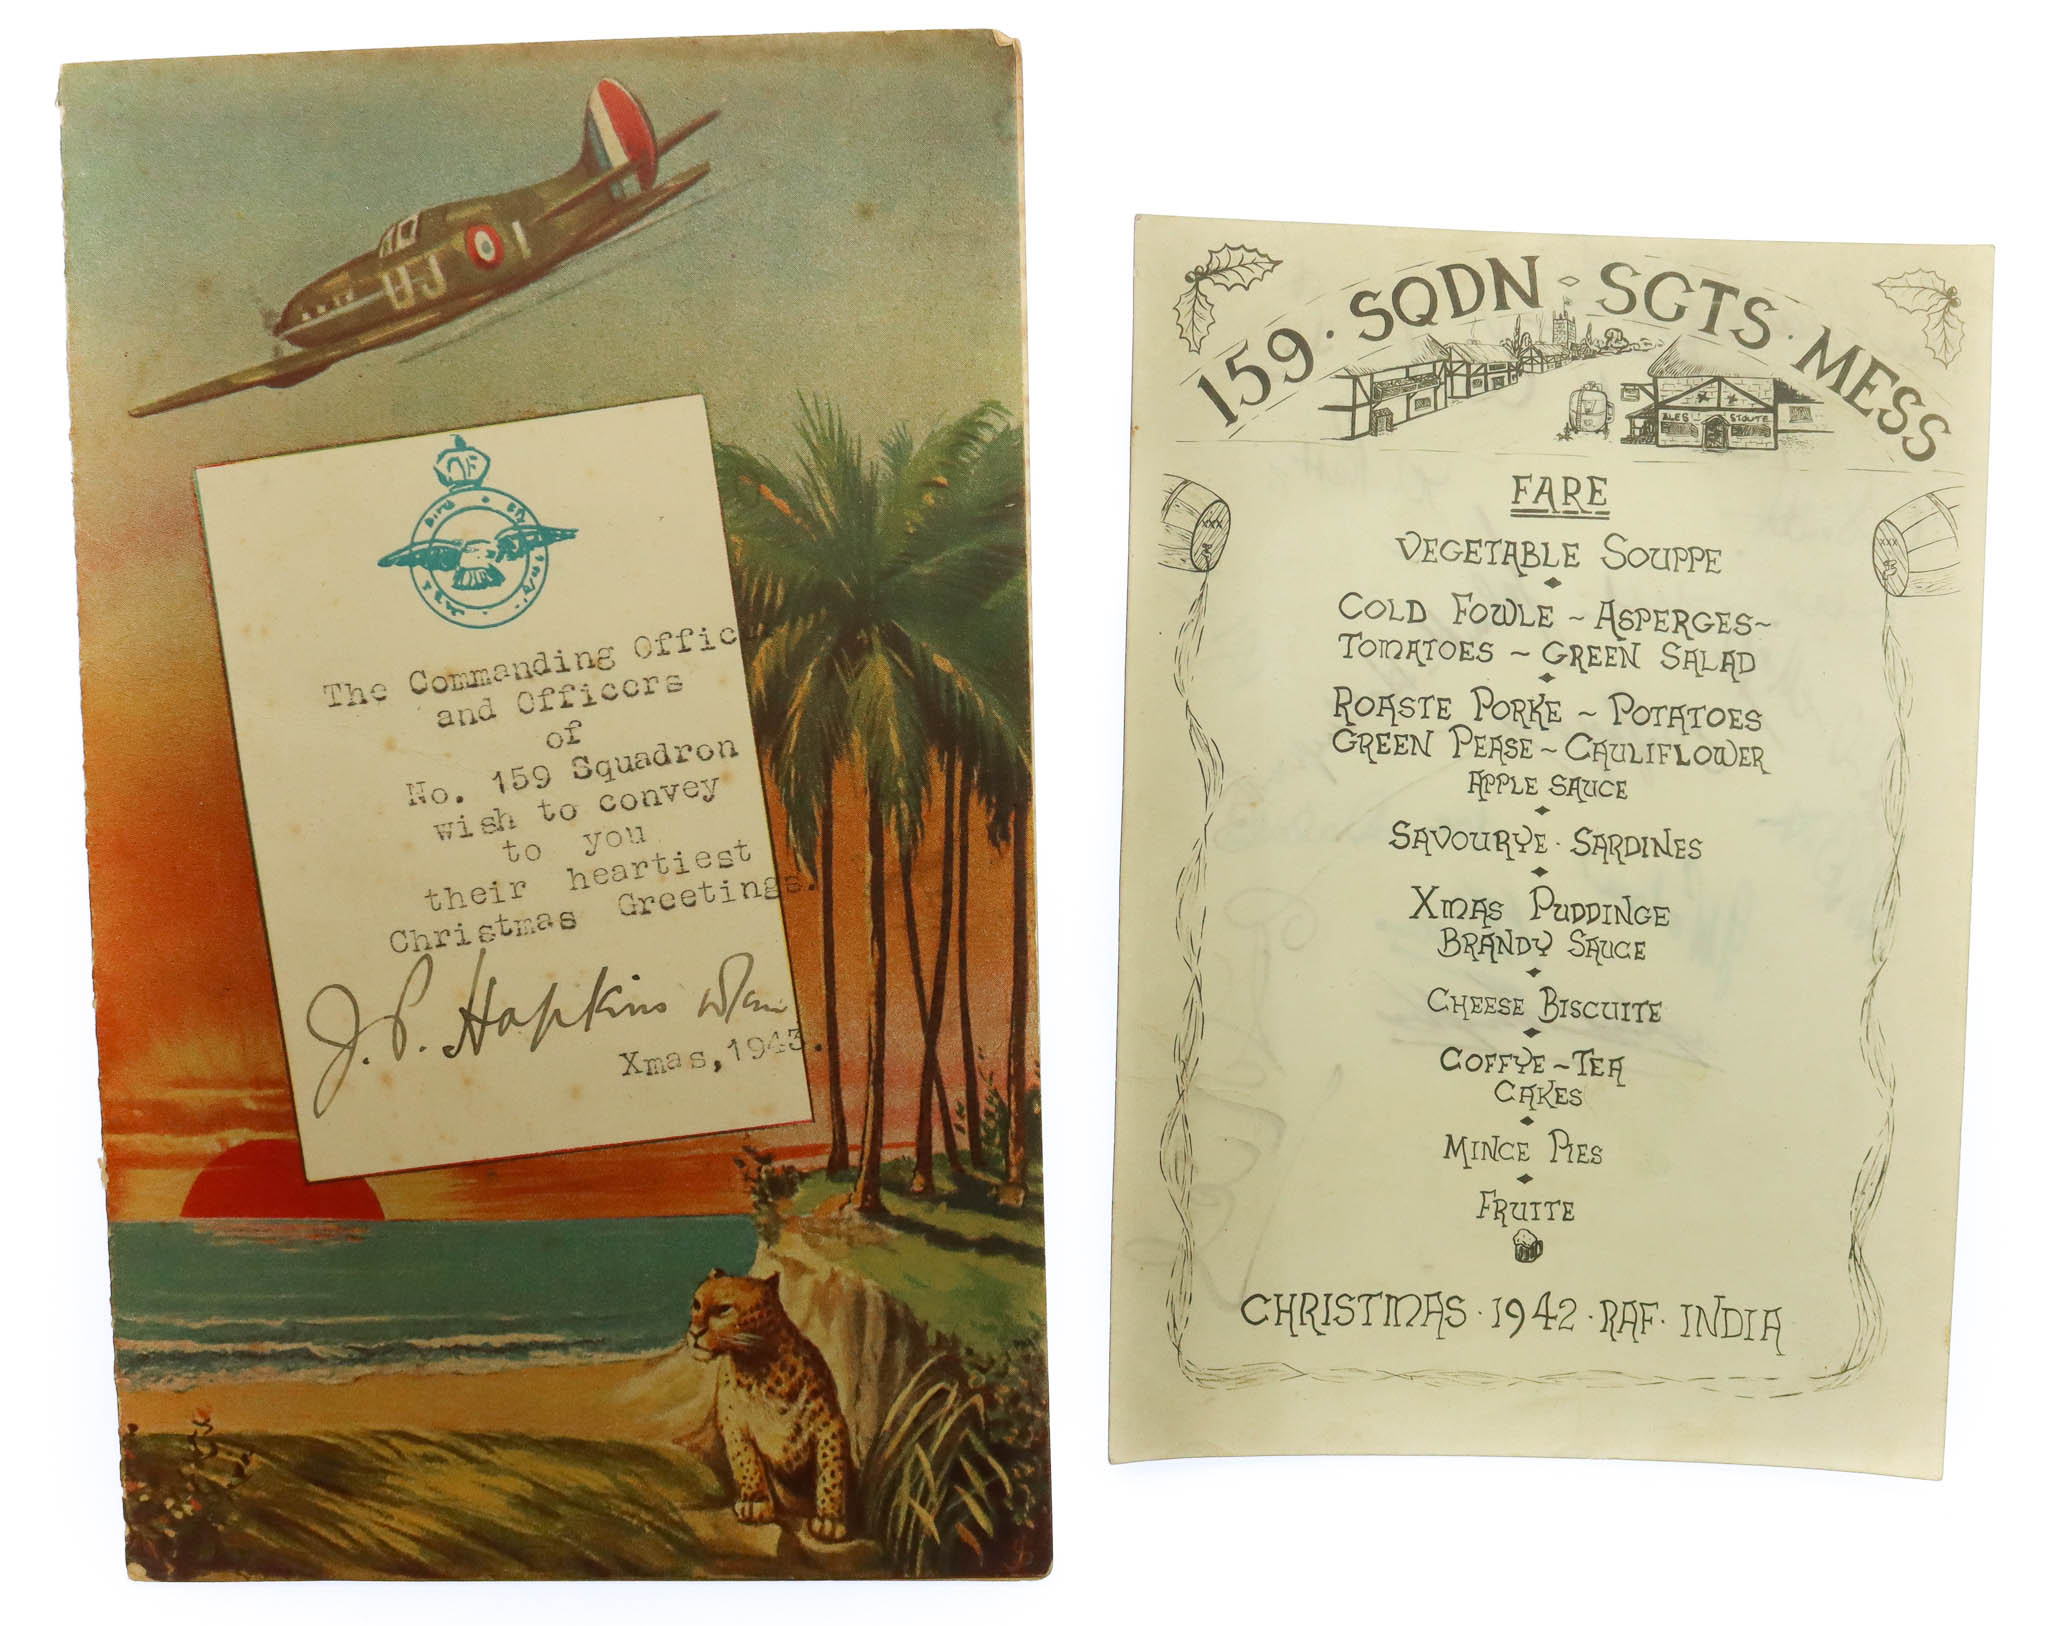 UJ I
The Commanding Offic
and Officers
of
No. 159 Squadron
wish to convey
to you
their heartiest
Christmas Greetings.
J. P. Hopkins
Xmas, 1943.
159 · SQDN · SGTS · MESS
ALES STOUTE
XXX
XXX
FARE
VEGETABLE SOUPPE
COLD FOWLE ~ ASPERGES ~
TOMATOES ~ GREEN SALAD
ROASTE PORKE ~ POTATOES
GREEN PEASE ~ CAULIFLOWER
APPLE SAUCE
SAVOURYE · SARDINES
XMAS PUDDINGE
BRANDY SAUCE
CHEESE BISCUITE
COFFYE ~ TEA
CAKES
MINCE PIES
FRUITE
CHRISTMAS · 1942 · RAF · INDIA